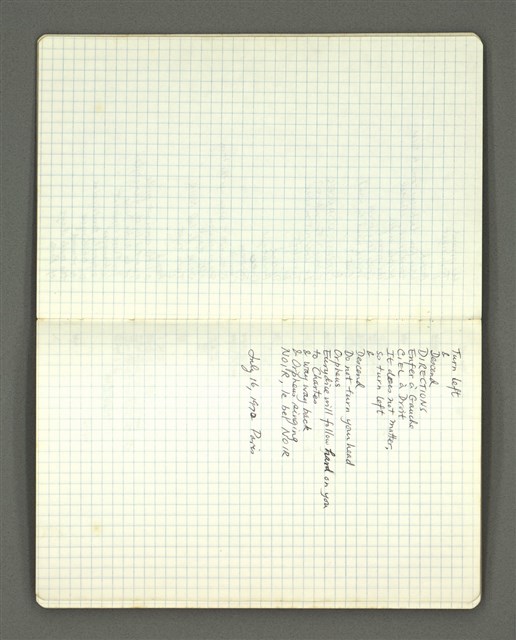 Turn left
&
Descend
DIRECTIONS
Enfer à Gauche
CIEL à Droit
It does not matter,
so turn left
&
Descend
Do not turn your head
Orpheus
Eurydice will follow hard on you
to Charten
& way way back
& Orpheus singing
NOIR, le bel NOIR
July 16, 1972 Paris